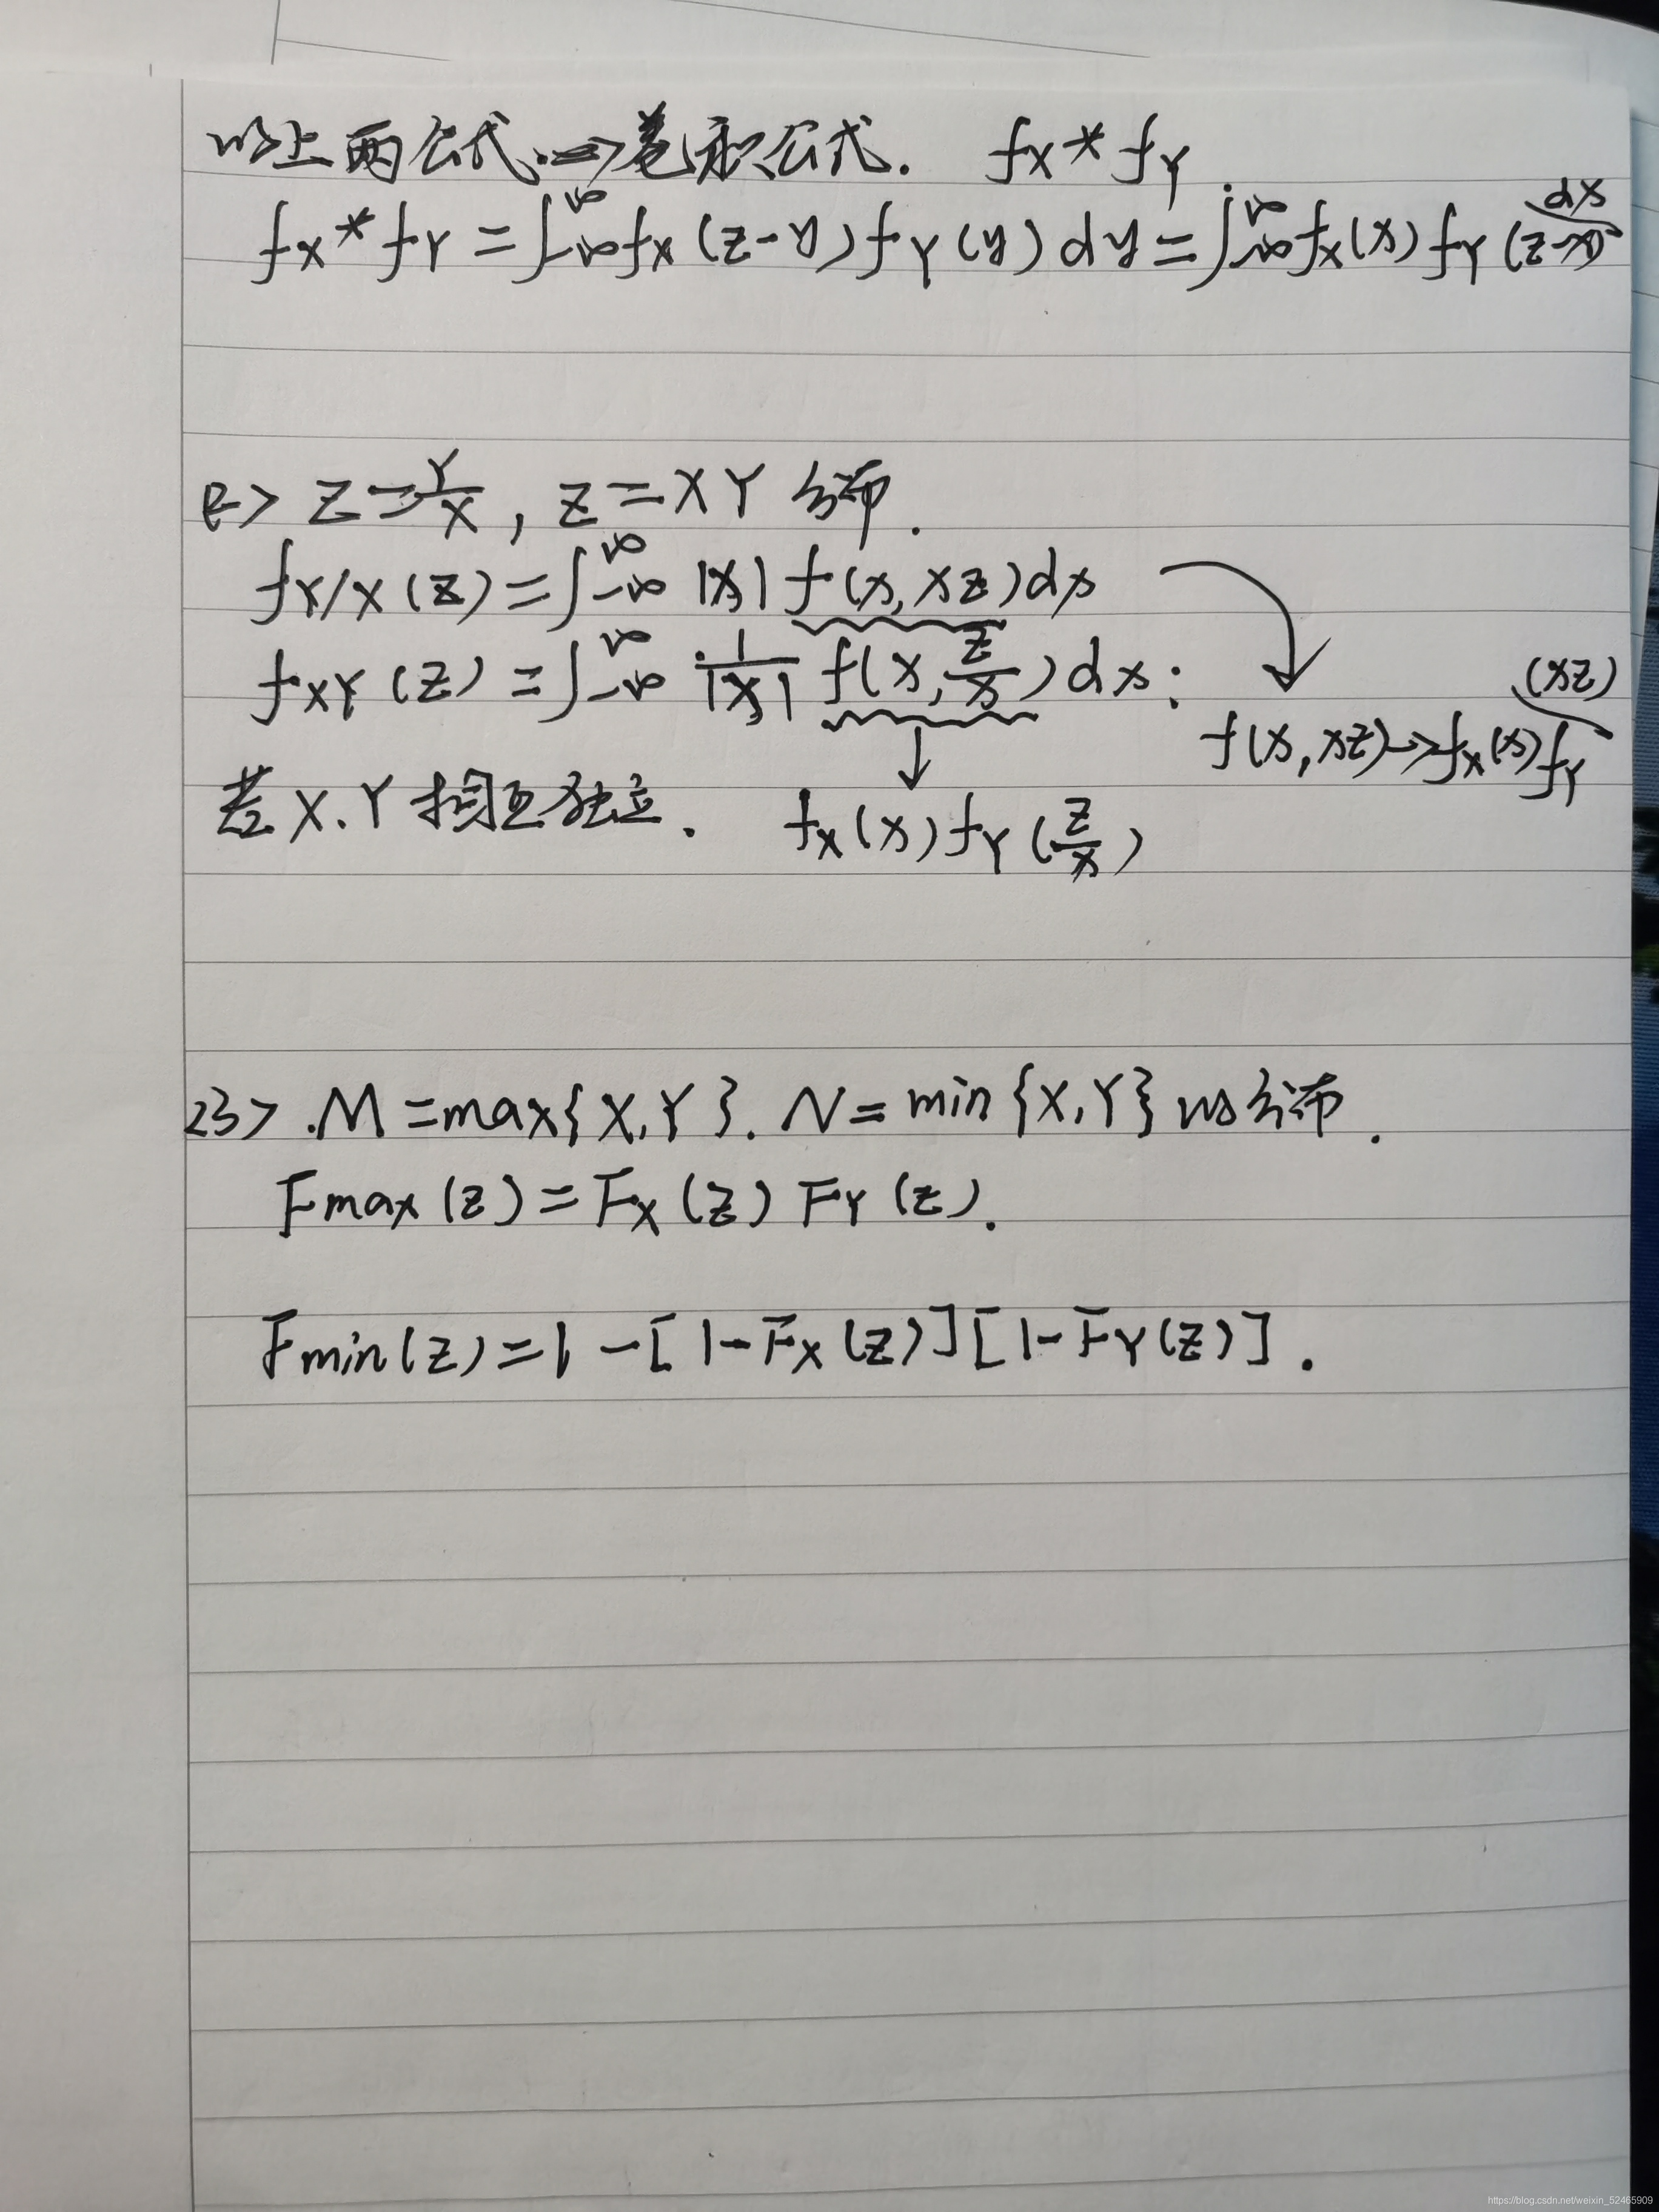 以上两公式.=>卷积公式. fX*fY.
fX*fY=∫-∞^∞fX(z-y)fY(y)dy=∫-∞^∞fX(x)fY(z-x)dx
<2> Z=Y/X, Z=XY 分布.
fY/X(z)=∫-∞^∞ |x| f(x,xz)dx
fXY(z)=∫-∞^∞ 1/|x| f(x,z/x)dx;
f(x,xz)→fX(x)fY(xz)
若X.Y相互独立. fX(x)fY(z/x)
<3>.M=max{X,Y}. N=min{X,Y}的分布.
Fmax(z)=FX(z)FY(z).
Fmin(z)=1-[1-FX(z)][1-FY(z)].
https://blog.csdn.net/weixin_52465909